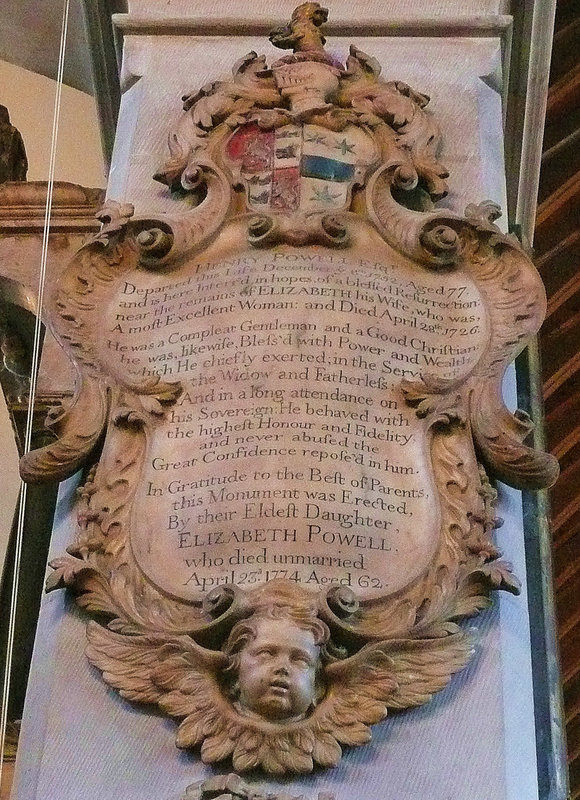 HENRY POWELL Esqr.
Departed this Life December ye 6th. Aged 77.
and is here Interred, in hopes, of a blessed Resurrection,
near the remains of ELIZABETH his Wife, who was,
A most Excellent Woman: and Died April 28th, 1726.
He was a Compleat Gentleman and a Good Christian:
he was, likewise, Bless'd with Power and Wealth,
which He chiefly exerted, in the Service
the Widow and Fatherless;
And in a long attendance on
his Sovereign: He behaved with
the highest Honour and Fidelity,
and never abused the
Great Confidence repose'd in him.
In Gratitude to the Best of Parents,
this Monument was Erected,
By their Eldest Daughter;
ELIZABETH POWELL,
who died unmarried
April 23d. 1774 Aged 62.